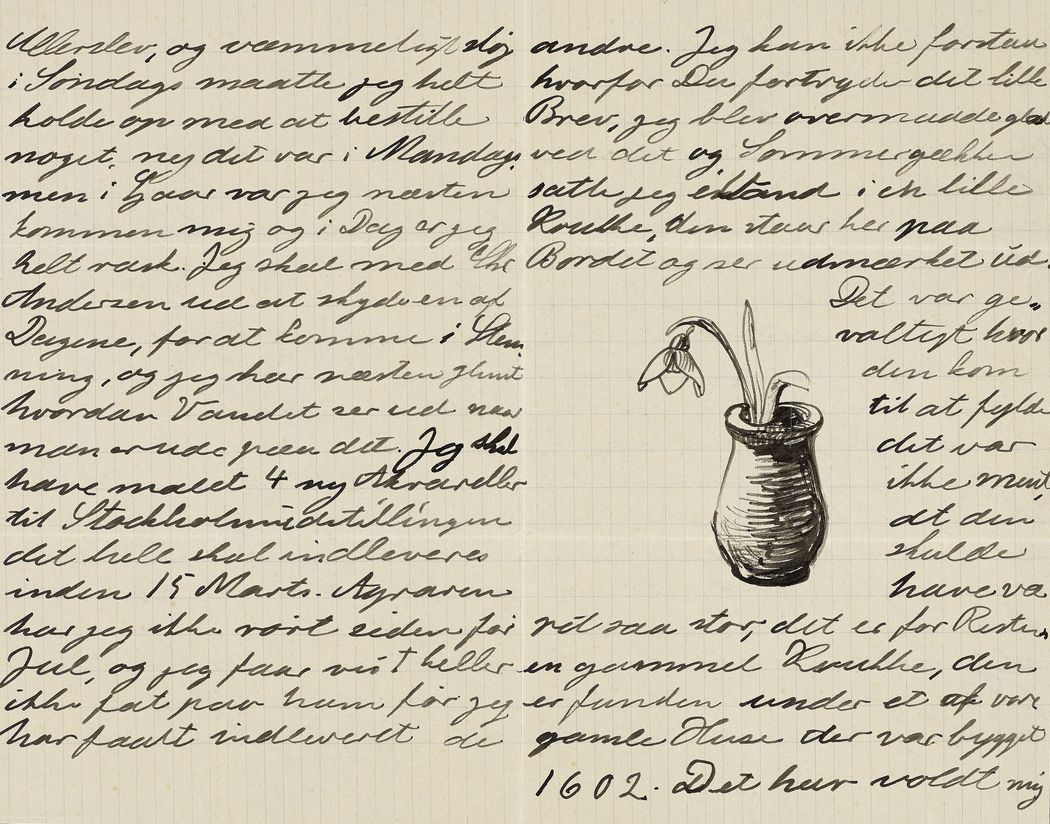 Ullerslev, og væmmeligt sløj
i Søndags maatte jeg helt
holde op med at bestille
noget, nej det var i Mandags
men i Gaar var jeg næsten
kommen mig og i Dag er jeg
helt rask. Jeg skal med Chr
Andersen ud at skyde en af
Dagene, for at komme i Stem
ning, og jeg har næsten glemt
hvordan Vandet ser ud naar
man er ude paa det. Jeg skal
have malet 4 ny Akvareller
til Stockholmudstillingen
det hele skal indleveres
inden 15 Marts. Agraren
har jeg ikke rørt siden før
Jul, og jeg faar vist heller
ikke fat paa ham før jeg
har faaet indleveret de
andre. Jeg kan ikke forstaa
hvorfor Du fortryder det lille
Brev, jeg blev overmaade glad
ved det og Sommergækken
satte jeg i en lille
Krukke, den staar her paa
Bordet og ser udmærket ud.
Det var ge„
valtigt hvor
den kom
til at fylde
det var
ikke ment,
at den
skulde
have væ
ret saa stor, det er for Resten
en gammel Krukke, den
er funden under et af vore
gamle Huse der var bygget
1602. Det har voldt mig